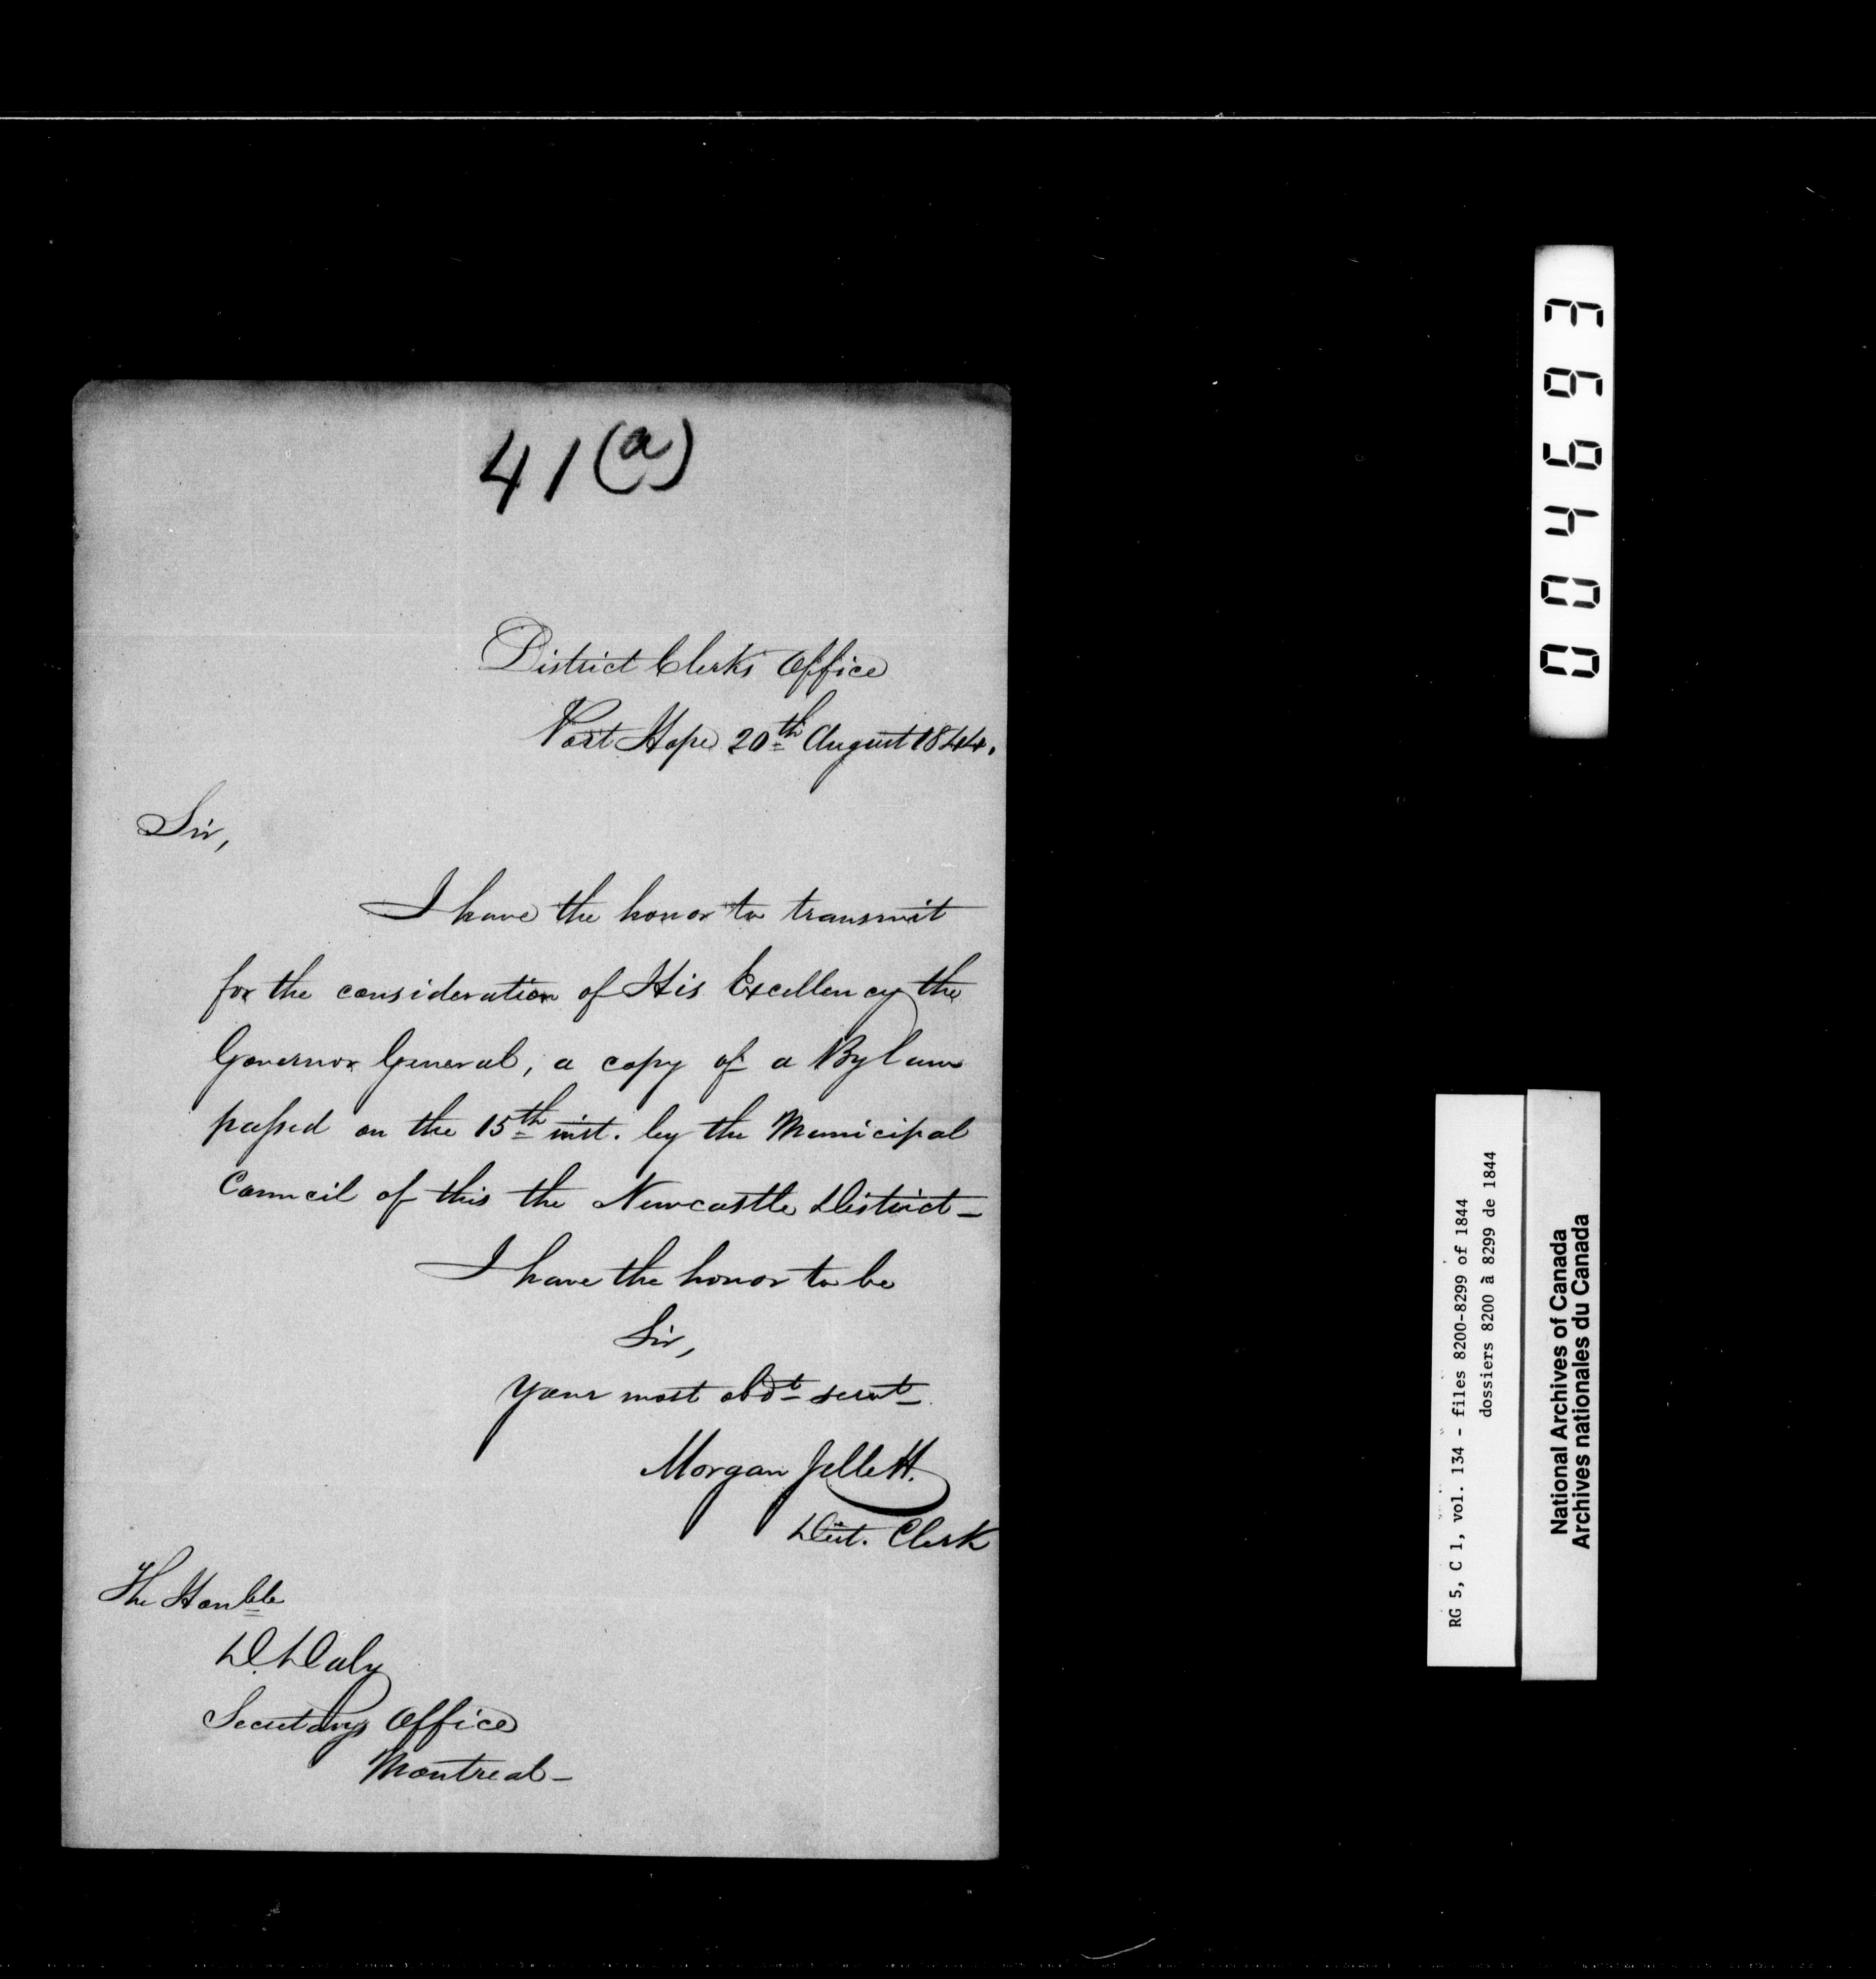 41(a)
District Clerks Office
Port Hope 20th August 1844.
Sir,
I have the honor to transmit
for the consideration of His Excellency the
Governor General, a copy of a Bylaw
passed on the 15th inst. by the Municipal
Council of this the Newcastle District –
I have the honor to be
Sir,
Your most obdt servt
Morgan Jellett.
Dist. Clerk
The Honble
D. Daly
Secretarys Office
Montreal –
004693
RG 5, C 1, vol. 134 - files 8200-8299 of 1844
dossiers 8200 à 8299 de 1844
National Archives of Canada
Archives nationales du Canada